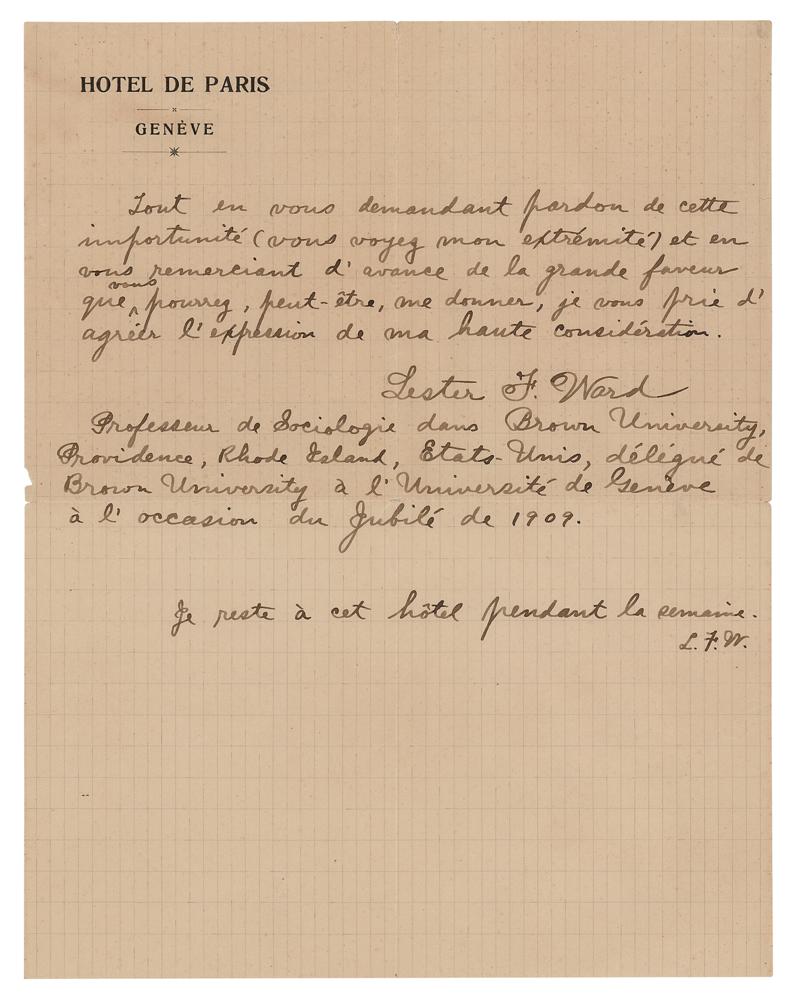 HOTEL DE PARIS
GENÈVE
Tout en vous demandant pardon de cette
importunité (vous voyez mon extrémité) et en
vous remerciant d'avance de la grande faveur
que vous pourrez, peut-être, me donner, je vous prie d'
agréer l'expression de ma haute considération.
Lester F. Ward
Professeur de Sociologie dans Brown University,
Providence, Rhode Island, Etats-Unis, délégué de
Brown University à l'Université de Genève
à l'occasion du Jubilé de 1909.
Je reste à cet hôtel pendant la semaine.
L. F. W.